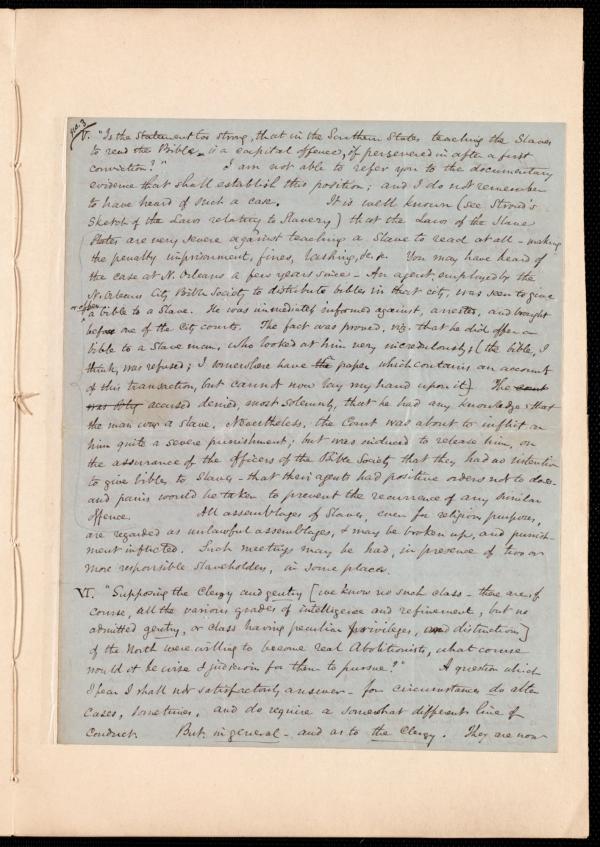 No. 3
V. "Is the statement too strong, that in the Southern States teaching the Slaves
to read the Bible, is a capital offence, if persevered in after a first
conviction?" I am not able to refer you to the documentary
evidence that shall establish this position; and I do not remember
to have heard of such a case. It is well known (see Stroud's
Sketch of the Laws relating to Slavery) that the Laws of the Slave
States are very severe against teaching a Slave to read at all - making
the penalty imprisonment, fines, lashing, &c. &c. You may have heard of
the case at N. Orleans a few years since - An agent employed by the
N. Orleans City Bible Society to distribute bibles in that city, was seen to give
or offer
a bible to a Slave. He was immediately informed against, arrested, and brought
before one of the city courts. The fact was proved, viz. that he did offer a
bible to a Slave man, who looked at him very incredulously; (the bible, I
think, was refused; I somewhere have the paper which contains an account
of this transaction, but cannot now lay my hand upon it). The court
was accused denied, most solemnly, that he had any knowledge that
the man was a slave. Nevertheless, the Court was about to inflict on
him quite a severe punishment; but was induced to release him, on
the assurance of the officers of the Bible Society that they had no intention
to give bibles to Slaves - that their agents had positive orders not to do so -
and pains would be taken to prevent the recurrence of any similar
offence. All assemblages of Slaves, even for religious purposes,
are regarded as unlawful assemblages, & may be broken up, and punish-
ment inflicted. Such meetings may be had, in presence of two or
more responsible slaveholders, in some places.
VI. "Supposing the Clergy and gentry [we know no such class - there are, of
course, all the various grades of intelligence and refinement, but no
admitted gentry, or class having peculiar privileges, and distinction]
of the North were willing to become real Abolitionists, what course
would it be wise & judicious for them to pursue?" A question which
I fear I shall not satisfactorily answer - for circumstances do alter
cases, sometimes, and do require a somewhat different line of
conduct. But in general - and as to the Clergy. They are now